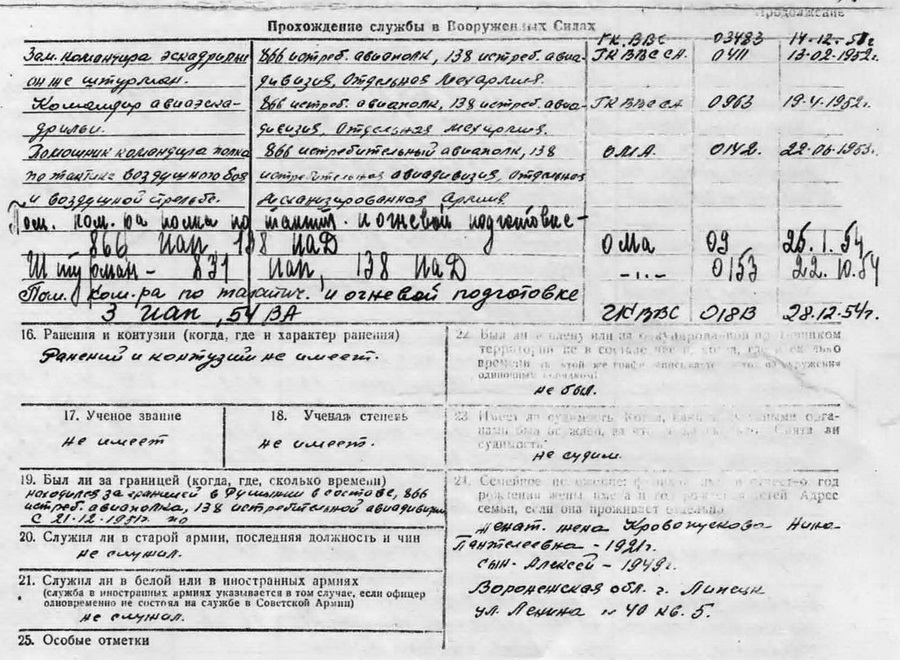 Продолжение
Прохождение службы в Вооруженных Силах
ГК.ВВС 03483 14-12-51г
Зам. командира эскадрильи 866 истреб. авиаполк, 138 истреб. авиа- ГК ВВС СА. 0411 13-02-1952г.
он же штурман. дивизия, Отдельная Мехармия.
Командир авиаэска- 866 истреб. авиаполк, 138 истреб. авиа- ГК ВВС СА 0963 19-4-1952г.
дрильи. дивизия, Отдельная мехармия.
Помошник командира полка 866 истребительный авиаполк, 138 ОМА. 0142. 22-06-1953г.
по тактике воздушного боя истребительная авиадивизия, Отдельная
и воздушной стрельбе. Механизированная Армия
Пом. ком. ра полка по тактич. и огневой подготовке -
866 иап, 138 иаД ОМА 09 25.1.54
Штурман - 831 иап, 138 иаД -"- 0153 22.10.54
Пом. ком-ра по тактич. и огневой подготовке
3 иап, 54 ВА ГК ВВС 01813 28-12-54г.
16. Ранения и контузии (когда, где и характер ранения)
Ранений и контузий не имеет.
22. Был ли в плену или на оккупированной противником
территории не в составе
времени
не был.
17. Ученое звание
не имеет
18. Ученая степень
не имеет.
23. Имеет ли судимость. Когда, какими судебными орга-
нами был осужден, за что
судимость
не судим.
19. Был ли за границей (когда, где, сколько времени)
находился за границей в Румынии в составе, 866
истреб. авиаполка, 138 истребительной авиадивизии
С 21-12-1951г. по
20. Служил ли в старой армии, последняя должность и чин
не служил.
21. Служил ли в белой или в иностранных армиях
(служба в иностранных армиях указывается в том случае, если офицер
одновременно не состоял на службе в Советской Армии)
не служил.
25. Особые отметки
24. Семейное положение: фамилия, имя и отчество, год
рождения жены, имена и год рождения детей. Адрес
семьи, если она проживает отдельно
женат. жена Кровопускова Нина
Пантелеевна - 1921г.
сын. Алексей - 1949г.
Воронежская обл. г. Липецк
ул. Ленина № 40 кв. 5.